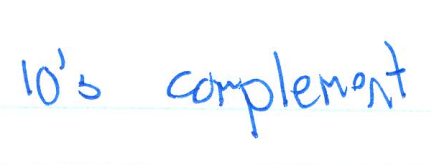 10's complement